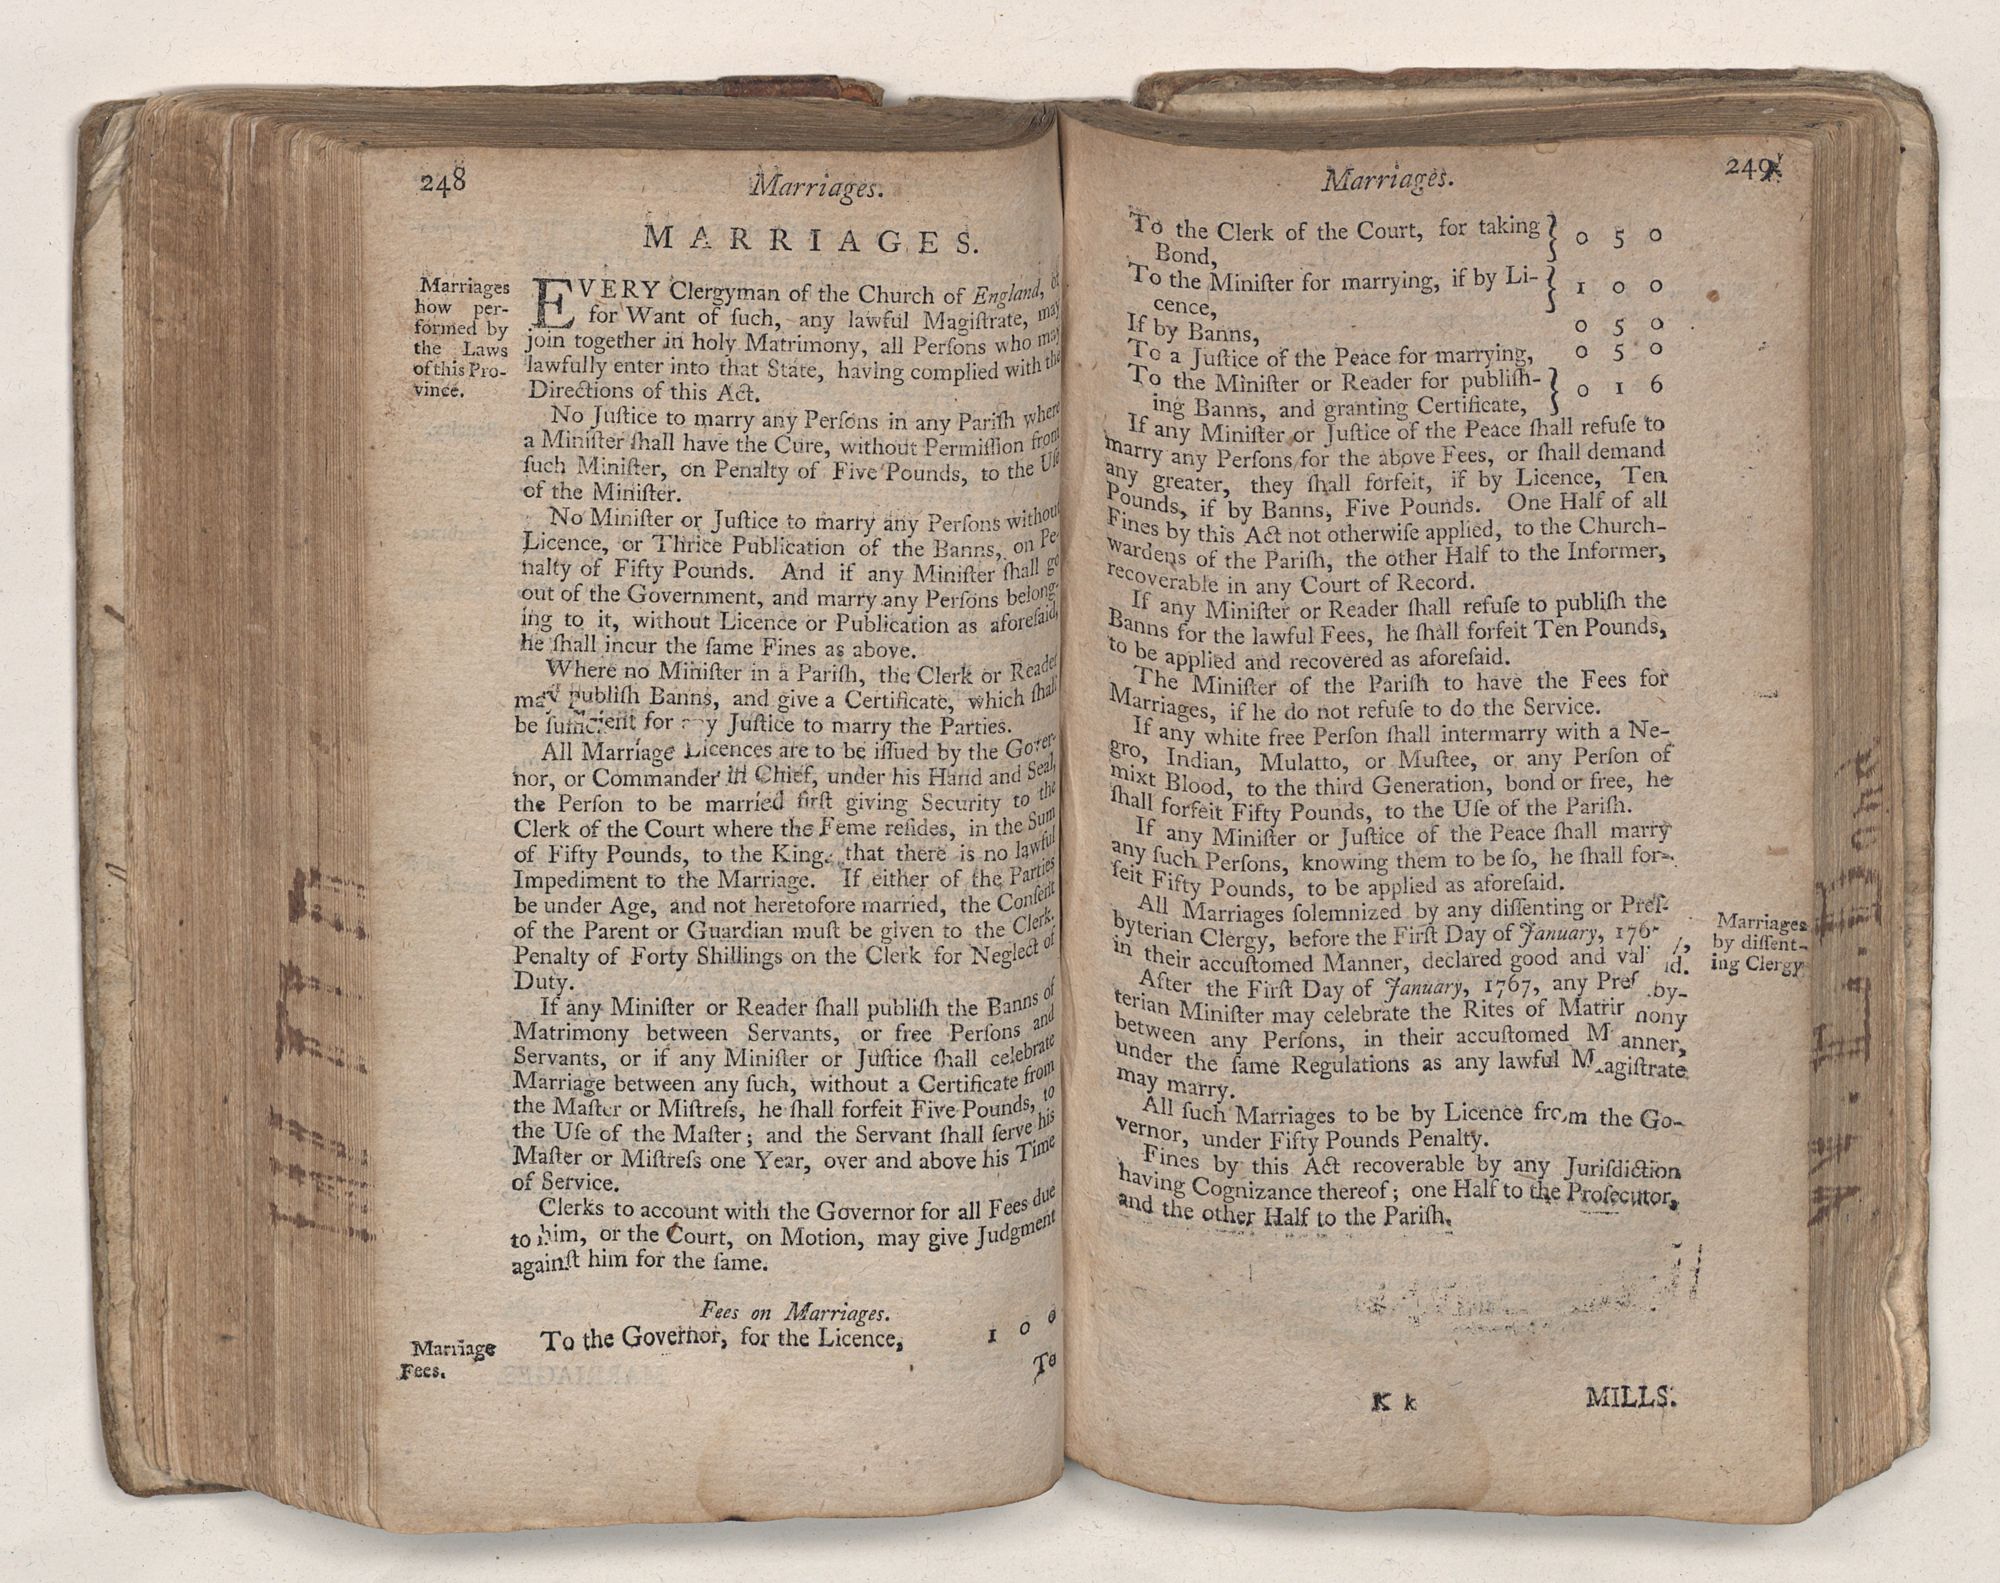 248
Marriages.
MARRIAGES.
Marriages
how per-
formed by
the Laws
of this Pro-
vince.
EVERY Clergyman of the Church of England, or
for Want of ſuch, any lawful Magiſtrate, may
join together in holy Matrimony, all Perſons who may
lawfully enter into that State, having complied with the
Directions of this Act.
No Juſtice to marry any Perſons in any Pariſh where
a Miniſter ſhall have the Cure, without Permiſſion from
ſuch Miniſter, on Penalty of Five Pounds, to the Uſe
of the Miniſter.
No Miniſter or Juſtice to marry any Perſons without
Licence, or Thrice Publication of the Banns, on Pe-
nalty of Fifty Pounds. And if any Miniſter ſhall go
out of the Government, and marry any Perſons belong-
ing to it, without Licence or Publication as aforeſaid,
he ſhall incur the ſame Fines as above.
Where no Miniſter in a Pariſh, the Clerk or Reader
may publiſh Banns, and give a Certificate, which ſhall
be ſufficient for any Juſtice to marry the Parties.
All Marriage Licences are to be iſſued by the Gover-
nor, or Commander in Chief, under his Hand and Seal,
the Perſon to be married firſt giving Security to the
Clerk of the Court where the Feme reſides, in the Sum
of Fifty Pounds, to the King, that there is no lawful
Impediment to the Marriage. If either of the Parties
be under Age, and not heretofore married, the Conſent
of the Parent or Guardian muſt be given to the Clerk.
Penalty of Forty Shillings on the Clerk for Neglect of
Duty.
If any Miniſter or Reader ſhall publiſh the Banns of
Matrimony between Servants, or free Perſons and
Servants, or if any Miniſter or Juſtice ſhall celebrate
Marriage between any ſuch, without a Certificate from
the Maſter or Miſtreſs, he ſhall forfeit Five Pounds, to
the Uſe of the Maſter; and the Servant ſhall ſerve his
Maſter or Miſtreſs one Year, over and above his Time
of Service.
Clerks to account with the Governor for all Fees due
to him, or the Court, on Motion, may give Judgment
againſt him for the ſame.
Fees on Marriages.
Marriage
Fees.
To the Governor, for the Licence, 1 0 0
To
Marriages.
249
To the Clerk of the Court, for taking } 0 5 0
Bond,
To the Miniſter for marrying, if by Li- } 1 0 0
cence,
If by Banns, 0 5 0
To a Juſtice of the Peace for marrying, 0 5 0
To the Miniſter or Reader for publiſh- } 0 1 6
ing Banns, and granting Certificate,
If any Miniſter or Juſtice of the Peace ſhall refuſe to
marry any Perſons for the above Fees, or ſhall demand
any greater, they ſhall forfeit, if by Licence, Ten
Pounds, if by Banns, Five Pounds. One Half of all
Fines by this Act not otherwiſe applied, to the Church-
wardens of the Pariſh, the other Half to the Informer,
recoverable in any Court of Record.
If any Miniſter or Reader ſhall refuſe to publiſh the
Banns for the lawful Fees, he ſhall forfeit Ten Pounds,
to be applied and recovered as aforeſaid.
The Miniſter of the Pariſh to have the Fees for
Marriages, if he do not refuſe to do the Service.
If any white free Perſon ſhall intermarry with a Ne-
gro, Indian, Mulatto, or Muſtee, or any Perſon of
mixt Blood, to the third Generation, bond or free, he
ſhall forfeit Fifty Pounds, to the Uſe of the Pariſh.
If any Miniſter or Juſtice of the Peace ſhall marry
any ſuch Perſons, knowing them to be ſo, he ſhall for-
feit Fifty Pounds, to be applied as aforeſaid.
All Marriages ſolemnized by any diſſenting or Preſ-
byterian Clergy, before the Firſt Day of January, 1767,
in their accuſtomed Manner, declared good and valid.
Marriages
by diſſent-
ing Clergy
After the Firſt Day of January, 1767, any Preſby-
terian Miniſter may celebrate the Rites of Matrimony
between any Perſons, in their accuſtomed Manner,
under the ſame Regulations as any lawful Magiſtrate
may marry.
All ſuch Marriages to be by Licence from the Go-
vernor, under Fifty Pounds Penalty.
Fines by this Act recoverable by any Juriſdiction
having Cognizance thereof; one Half to the Proſecutor,
and the other Half to the Pariſh.
K k
MILLS.